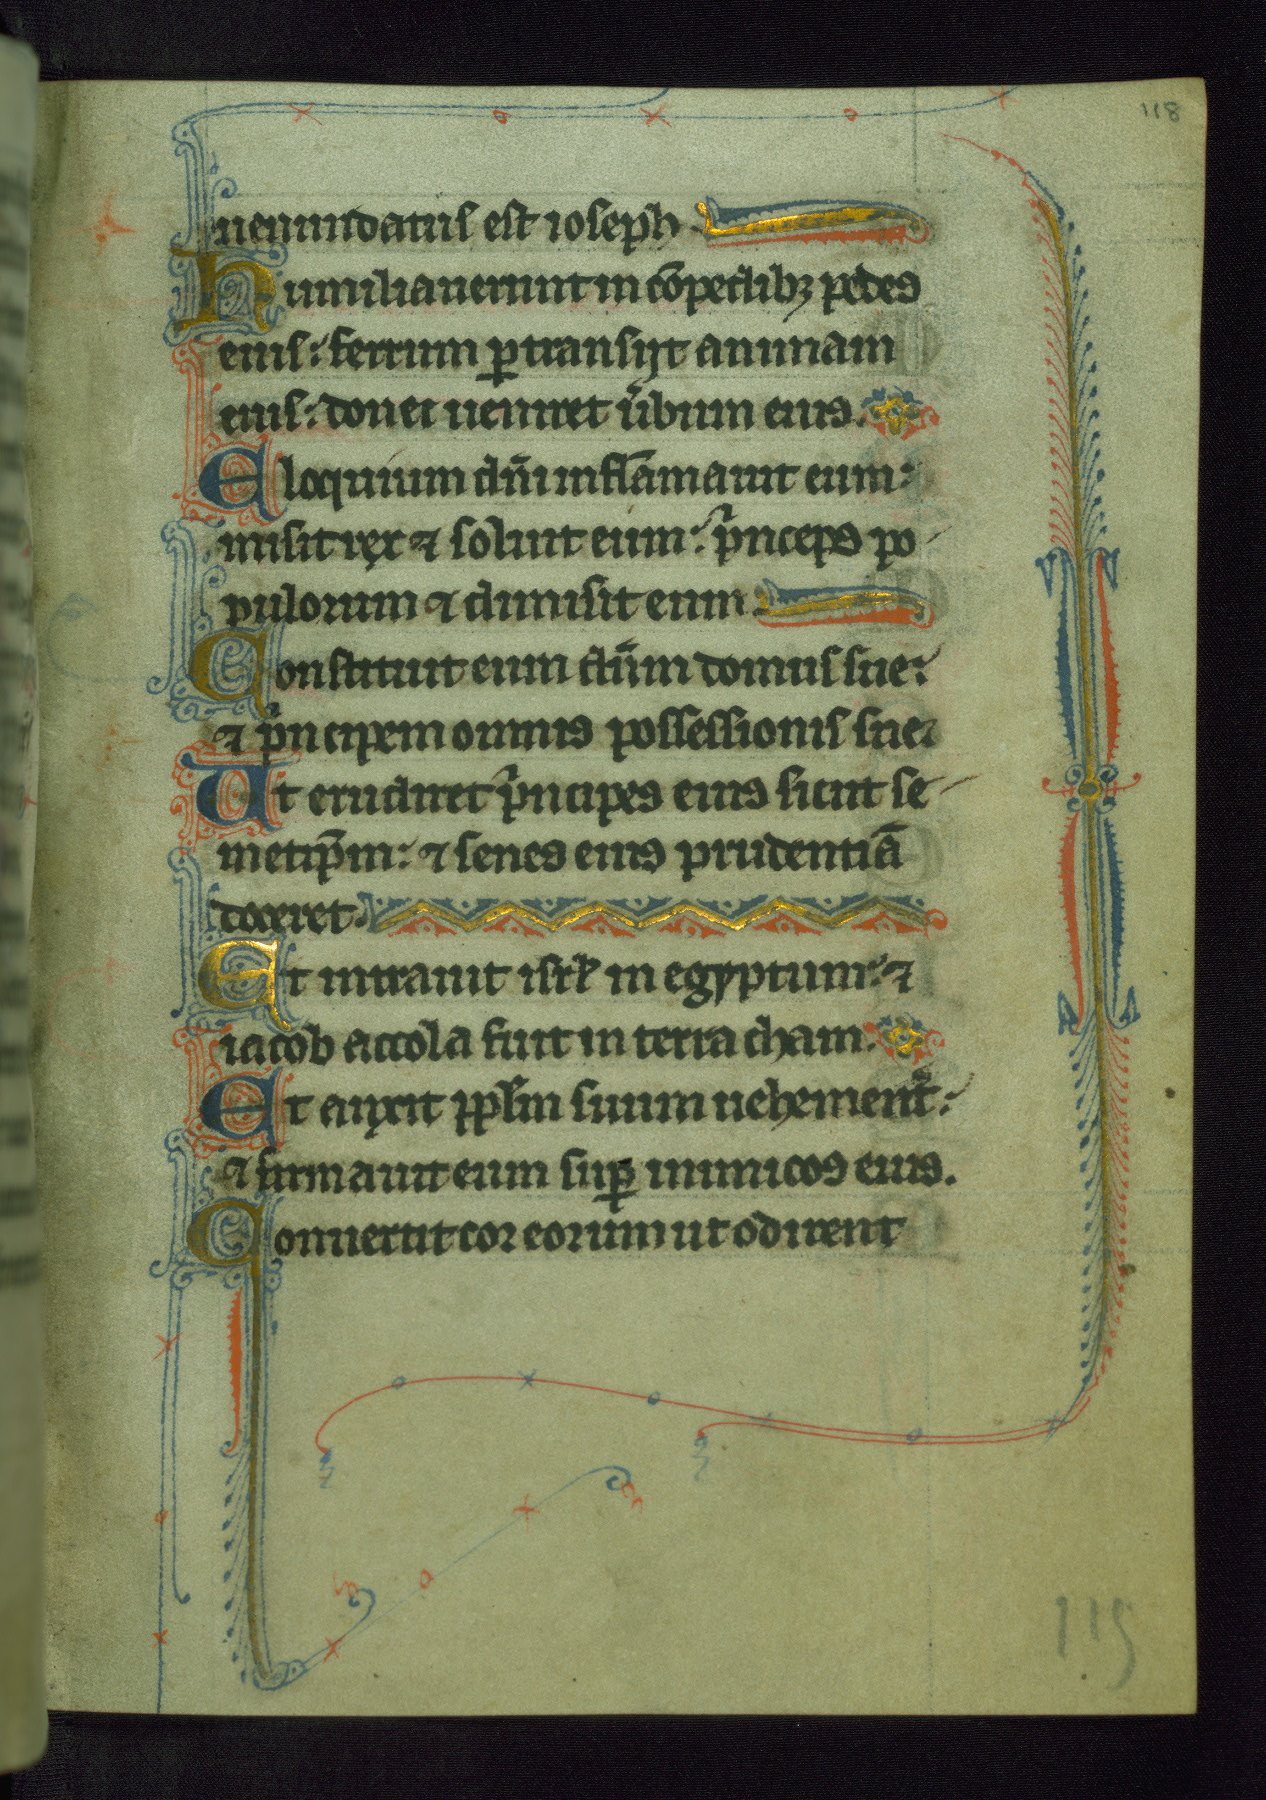 118
uenundatus est ioseph.
Humiliauerunt in cōpedibꝫ pedes
eius: ferrum ꝑtransijt animam
eius: donec ueniret ũbum eius.
Eloquium dñi inflāmauit eum:
misit rex ⁊ soluit eum: pͥnceps po
pulorum ⁊ dimisit eum
Constituit eum dñm domus sue:
⁊ pͥncipem omnis possessionis sue.
Ut erudiret pͥncipes eius sicut se
metip̄m: ⁊ senes eius prudentiā
doceret.
Et intrauit isrl̄ in egyptum: ⁊
iacob accola fuit in terra cham.
Et auxit ppl̄m suum uehement̃:
⁊ firmauit eum suꝑ inimicos eius.
Conuertit cor eorum ut odirent
119